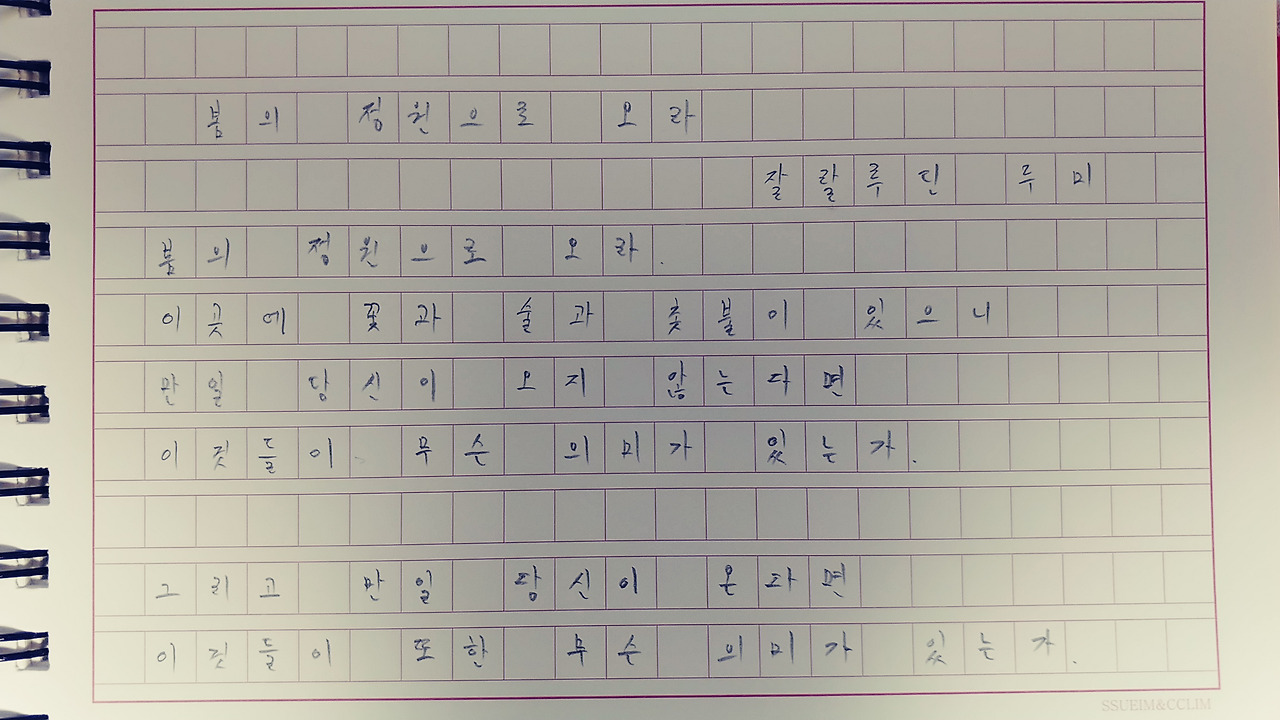 봄의 정원으로 오라
잘랄루딘 루미
봄의 정원으로 오라.
이곳에 꽃과 술과 촛불이 있으니
만일 당신이 오지 않는다면
이것들이 무슨 의미가 있는가.
그리고 만일 당신이 온다면
이것들이 또한 무슨 의미가 있는가.
SSUEIM&CCLIM